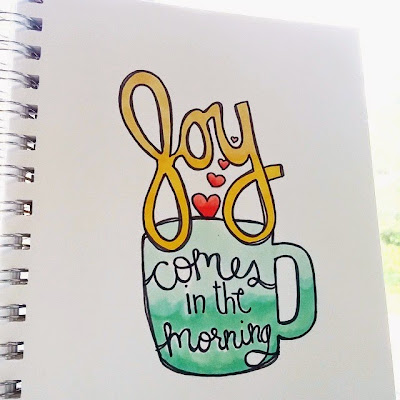 Joy
comes
in the
morning